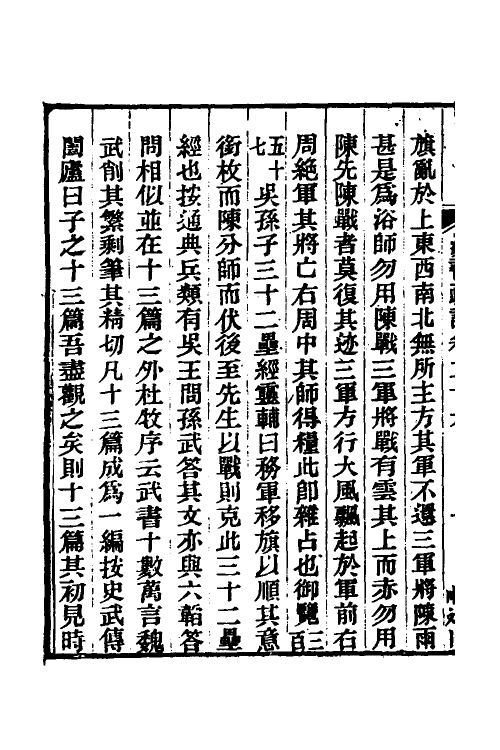 旗亂於上東西南北無所主方其軍不還三軍將陳雨
甚是爲浴師勿用陳戰三軍將戰有雲其上而赤勿用
陳先陳戰者莫復其迹三軍方行大風飄起於軍前右
周絶軍其將亡右周中其師得糧此卽雜占也御覽三百
五十七吳孫子三十二壘經靈輔曰務軍移旗以順其意
銜枚而陳分師而伏後至先生以戰則克此三十二壘
經也按通典兵類有吳王問孫武答其文亦與六韜答
問相似並在十三篇之外杜牧序云武書十數萬言魏
武削其繁剩筆其精切凡十三篇成爲一編按史武傳
闔廬曰子之十三篇吾盡觀之矣則十三篇其初見時